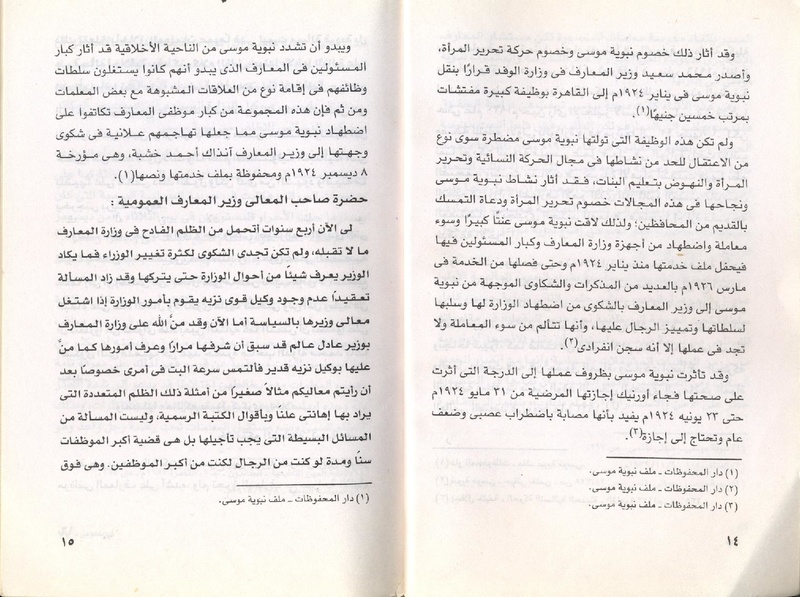 وقد أثار ذلك خصوم نبوية موسى وخصوم حركة تحرير المرأة،
وأصدر محمد سعيد وزير المعارف فى وزارة الوفد قرارًا بنقل
نبوية موسى فى يناير ١٩٢٤م إلى القاهرة بوظيفة كبيرة مفتشات
بمرتب خمسين جنيهًا(١).
ولم تكن هذه الوظيفة التى تولتها نبوية موسى مضطرة سوى نوع
من الاعتقال للحد من نشاطها فى مجال الحركة النسائية وتحرير
المرأة والنهوض بتعليم البنات، فـقـد أثار نشاط نبـوية مـوسى
ونجاحها فى هذه المجالات خصوم تحرير المرأة ودعاة التمسك
بالقديم من المحافظين؛ ولذلك لاقت نبوية موسى عنتًا كبيرًا وسوء
معاملة واضطهاد من أجهزة وزارة المعارف وكبار المسئولين فيها
فيحفل ملف خدمتها منذ يناير ١٩٢٤م وحتى فصلها من الخدمة فى
مارس ١٩٢٦م بالعديد من المذكرات والشكاوى الموجهة من نبوية
موسى إلى وزير المعارف بالشكوى من اضطهاد الوزارة لها وسلبها
لسلطاتها وتمييز الرجال عليها، وأنها تتألم من سوء المعاملة ولا
تجد فى عملها إلا أنه سجن انفرادى(٢).
وقد تأثرت نبوية موسى بظروف عملها إلى الدرجة التى أثرت
على صحتها فجاء أورنيك إجازتها المرضية من ٣١ مايو ١٩٢٤م
حتى ٢٣ يونيه ١٩٢٤م يفيد بأنها مصابة باضطراب عصبى وضعف
عام وتحتاج إلى إجازة(٣).
(١) دار المحفوظات ـ ملف نبوية موسى.
(٢) دار المحفوظات ـ ملف نبوية موسى.
(٣) دار المحفوظات ـ ملف نبوية موسى.
١٤
ويبدو أن تشدد نبوية موسى من الناحية الأخلاقية قد أثار كبار
المسئولين فى المعارف الذى يبدو أنهم كانوا يستغلون سلطات
وظائفهم فى إقامة نوع من العلاقات المشبوهة مع بعض المعلمات
ومن ثم فإن هذه المجموعة من كبار موظفى المعارف تكاتفوا على
اضطهاد نبوية موسى مما جعلها تهاجمهم علانية فى شكوى
وجهتها إلى وزير المعارف آنذاك أحمد خشبة، وهى مؤرخة
٨ ديسمبر ١٩٢٤م ومحفوظة بملف خدمتها ونصها(١).
حضرة صاحب المعالى وزير المعارف العمومية :
لى الآن أربع سنوات أتحمل من الظلم الفادح فى وزارة المعارف
ما لا تقبله، ولم تكن تجدى الشكوى لكثرة تغيير الوزراء فما يكاد
الوزير يعرف شيئًا من أحوال الوزارة حتى يتركها وقد زاد المسألة
تعقيدًا عدم وجود وكيل قوى نزيه يقوم بأمور الوزارة إذا اشتغل
معالى وزيرها بالسياسة أما الآن وقد منَّ الله على وزارة المعارف
بوزير عادل عالم قد سبق أن شرفها مرارًا وعرف أمورها كما منَّ
عليها بوكيل نزيه قدير فألتمس سرعة البت فى أمرى خصوصًا بعد
أن رأيتم معاليكم مثالاً صغيرًا من أمثلة ذلك الظلم المتعددة التى
يراد بها إهانتى علنًا وبأقوال الكتبة الرسمية، وليست المسألة من
المسائل البسيطة التى يجب تأجيلها بل هى قضية أكبر الموظفات
سنًا ومدة لو كنت من الرجال لكنت من أكبر الموظفين. وهى فوق
(١) دار المحفوظات ـ ملف نبوية موسى.
١٥